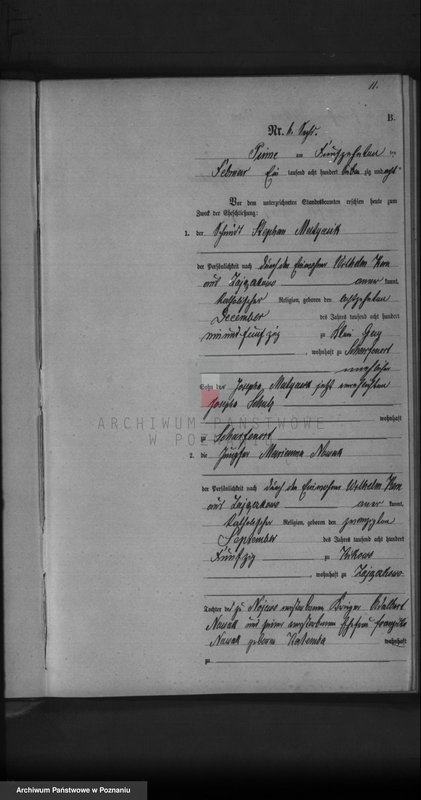 11.
B.
Nr. 6. Sechs.
Pinne am Fünfzehnten ten
Februar Ein tausend acht hundert sieben zig und acht
Vor dem unterzeichneten Standesbeamten erschien heute zum
Zweck der Eheschließung:
1. der Schmidt Stephan
der Persönlichkeit nach durch den Einwohner Wilhelm
aus Zajączkowo aner kannt,
katholischer Religion, geboren den achtzehnten
December des Jahres tausend acht hundert
neun und fünf zig zu Klein
, wohnhaft zu Scharfenort
unehelicher
Sohn der Josepha jetzt verehelichten
Josepha Schulz
wohnhaft
zu Scharfenort
2. die Jungfer Marianna Nowak
der Persönlichkeit nach durch den Einwohner Wilhelm
aus Zajączkowo aner kannt,
katholischer Religion, geboren den zwanzigsten
September des Jahres tausend acht hundert
Fünf zig zu
, wohnhaft zu Zajączkowo
Tochter des zu verstorbenen Adalbert
Nowak und seiner verstorbenen Ehefrau
Nowak geborne wohnhaft
zu
ARCHIWUM PAŃSTWOWE
W POZNANIU
Archiwum Państwowe w Poznaniu